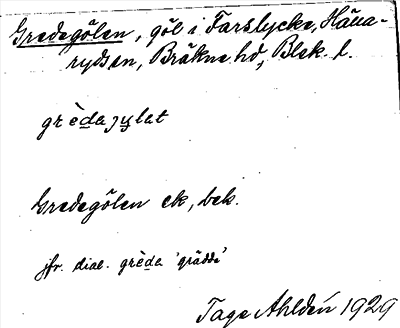 Gredegölen, göl i Farslycke, Häua-
rydsen, Bräkne hd, Blek. l.
grèdaɟylat
Gredegölen ek, bek.
jfr. dial. grèda 'grädde'
Tage Ahldén 1929